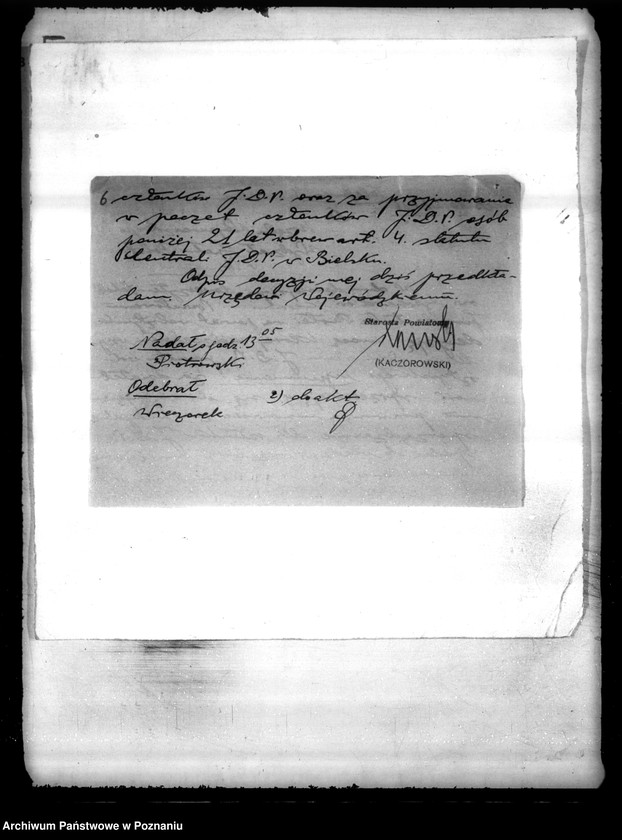 6 członków J.D.P. oraz za przyjmowanie
w poczet członków J.D.P. osób
poniżej 21 lat wbrew art. 4. statutu
Centrali J.D.P. w Bielsku.
Odpis decyzji mej dziś przedkła-
dam Urzędowi Wojewódzkiemu.
Starosta Powiatowy
(KACZOROWSKI)
Nadał o godz. 13 05
Piotrowski
Odebrał
Wieczorek
2) do akt
Archiwum Państwowe w Poznaniu